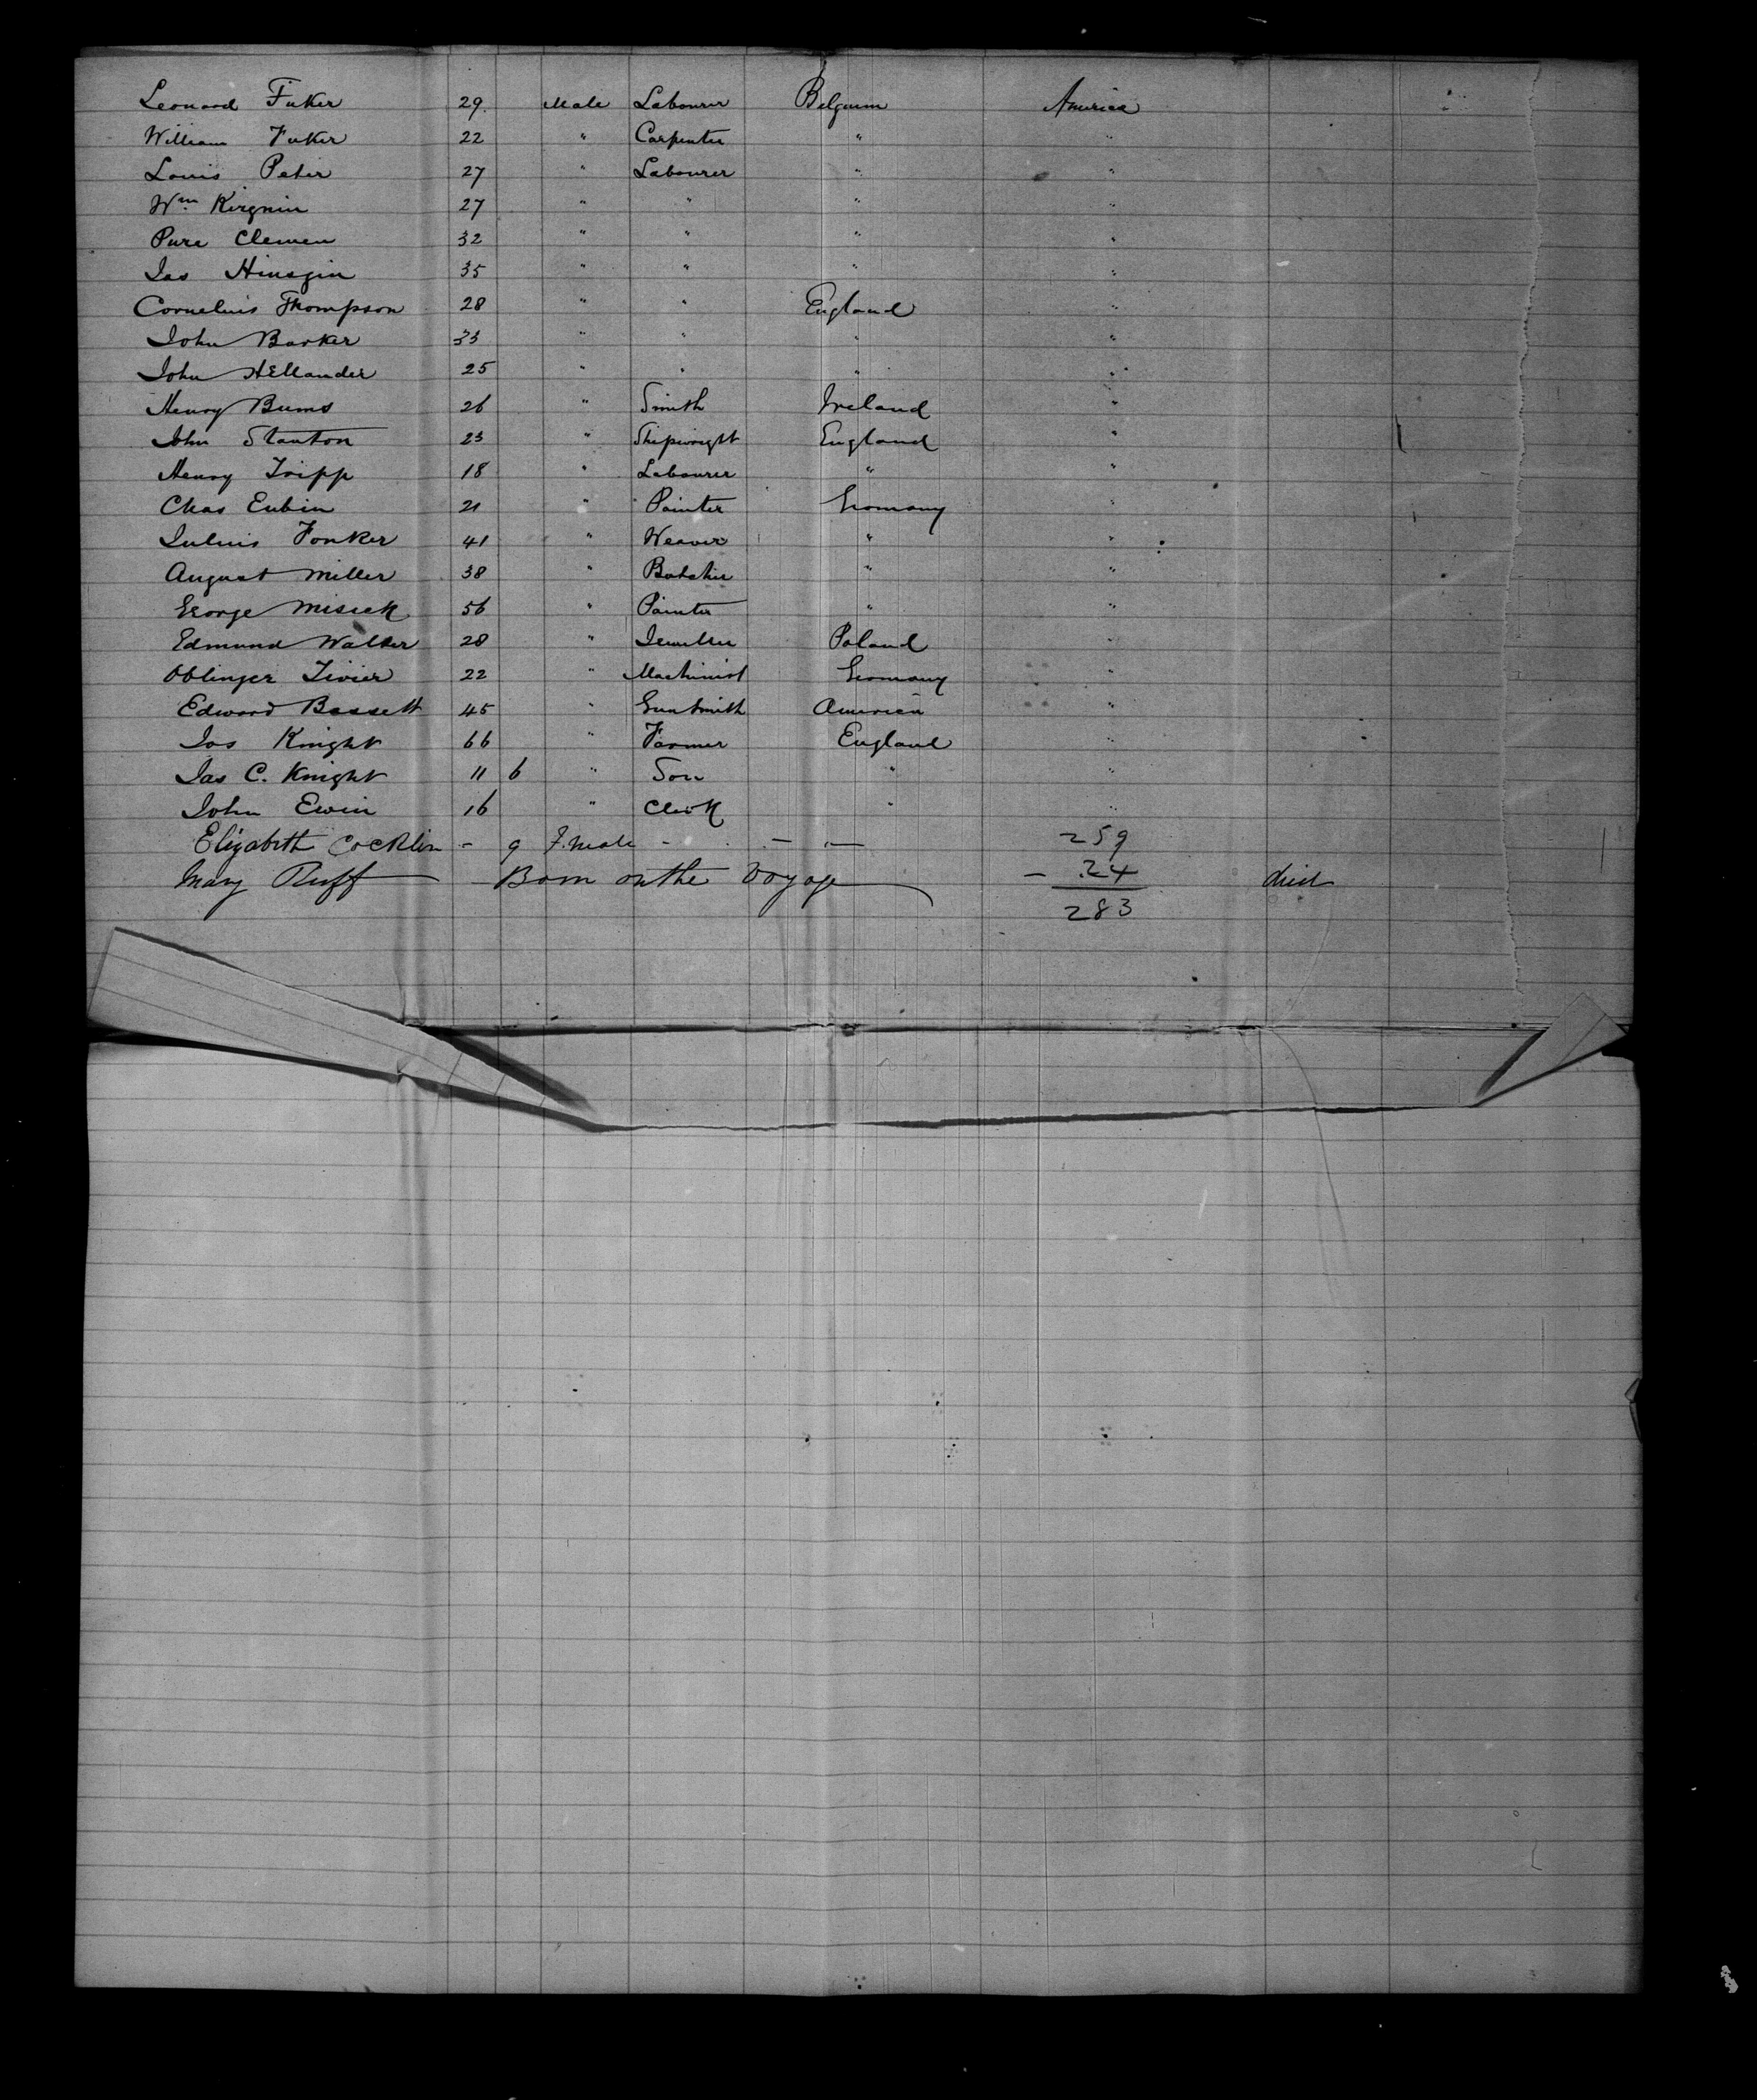 Leonard Fuker 29. Male Labourer Belgium America
William Fuker 22 " Carpenter " "
Louis Peter 27 " Labourer " "
Wm Kirgnin 27 " " " "
Pure Clemen 32 " " " "
Jas Hinsgin 35 " " " "
Cornelius Thompson 28 " " England "
John Barker 33 " " " "
John Hellander 25 " " " "
Henry Burns 26 " Smith Ireland "
John Stanton 23 " Shipwright England "
Henry Tripp 18 " Labourer " "
Chas Eubin 21 " Painter Germany "
Julius Fonker 41 " Weaver " "
August Miller 38 " Butcher " "
George Misick 56 " Painter " "
Edmund Walker 28 " Jeweller Poland "
Oblinger Tivier 22 " Machinist Germany "
Edward Bassett 45 " Gunsmith America "
Jos Knight 66 " Farmer England "
Jas C. Knight 11 6 " Son " "
John Ewin 16 " Clerk " "
Elizabeth Cocklin - 9 Female - - - 259
Mary Ruff - Born on the Voyage - 24 died
283